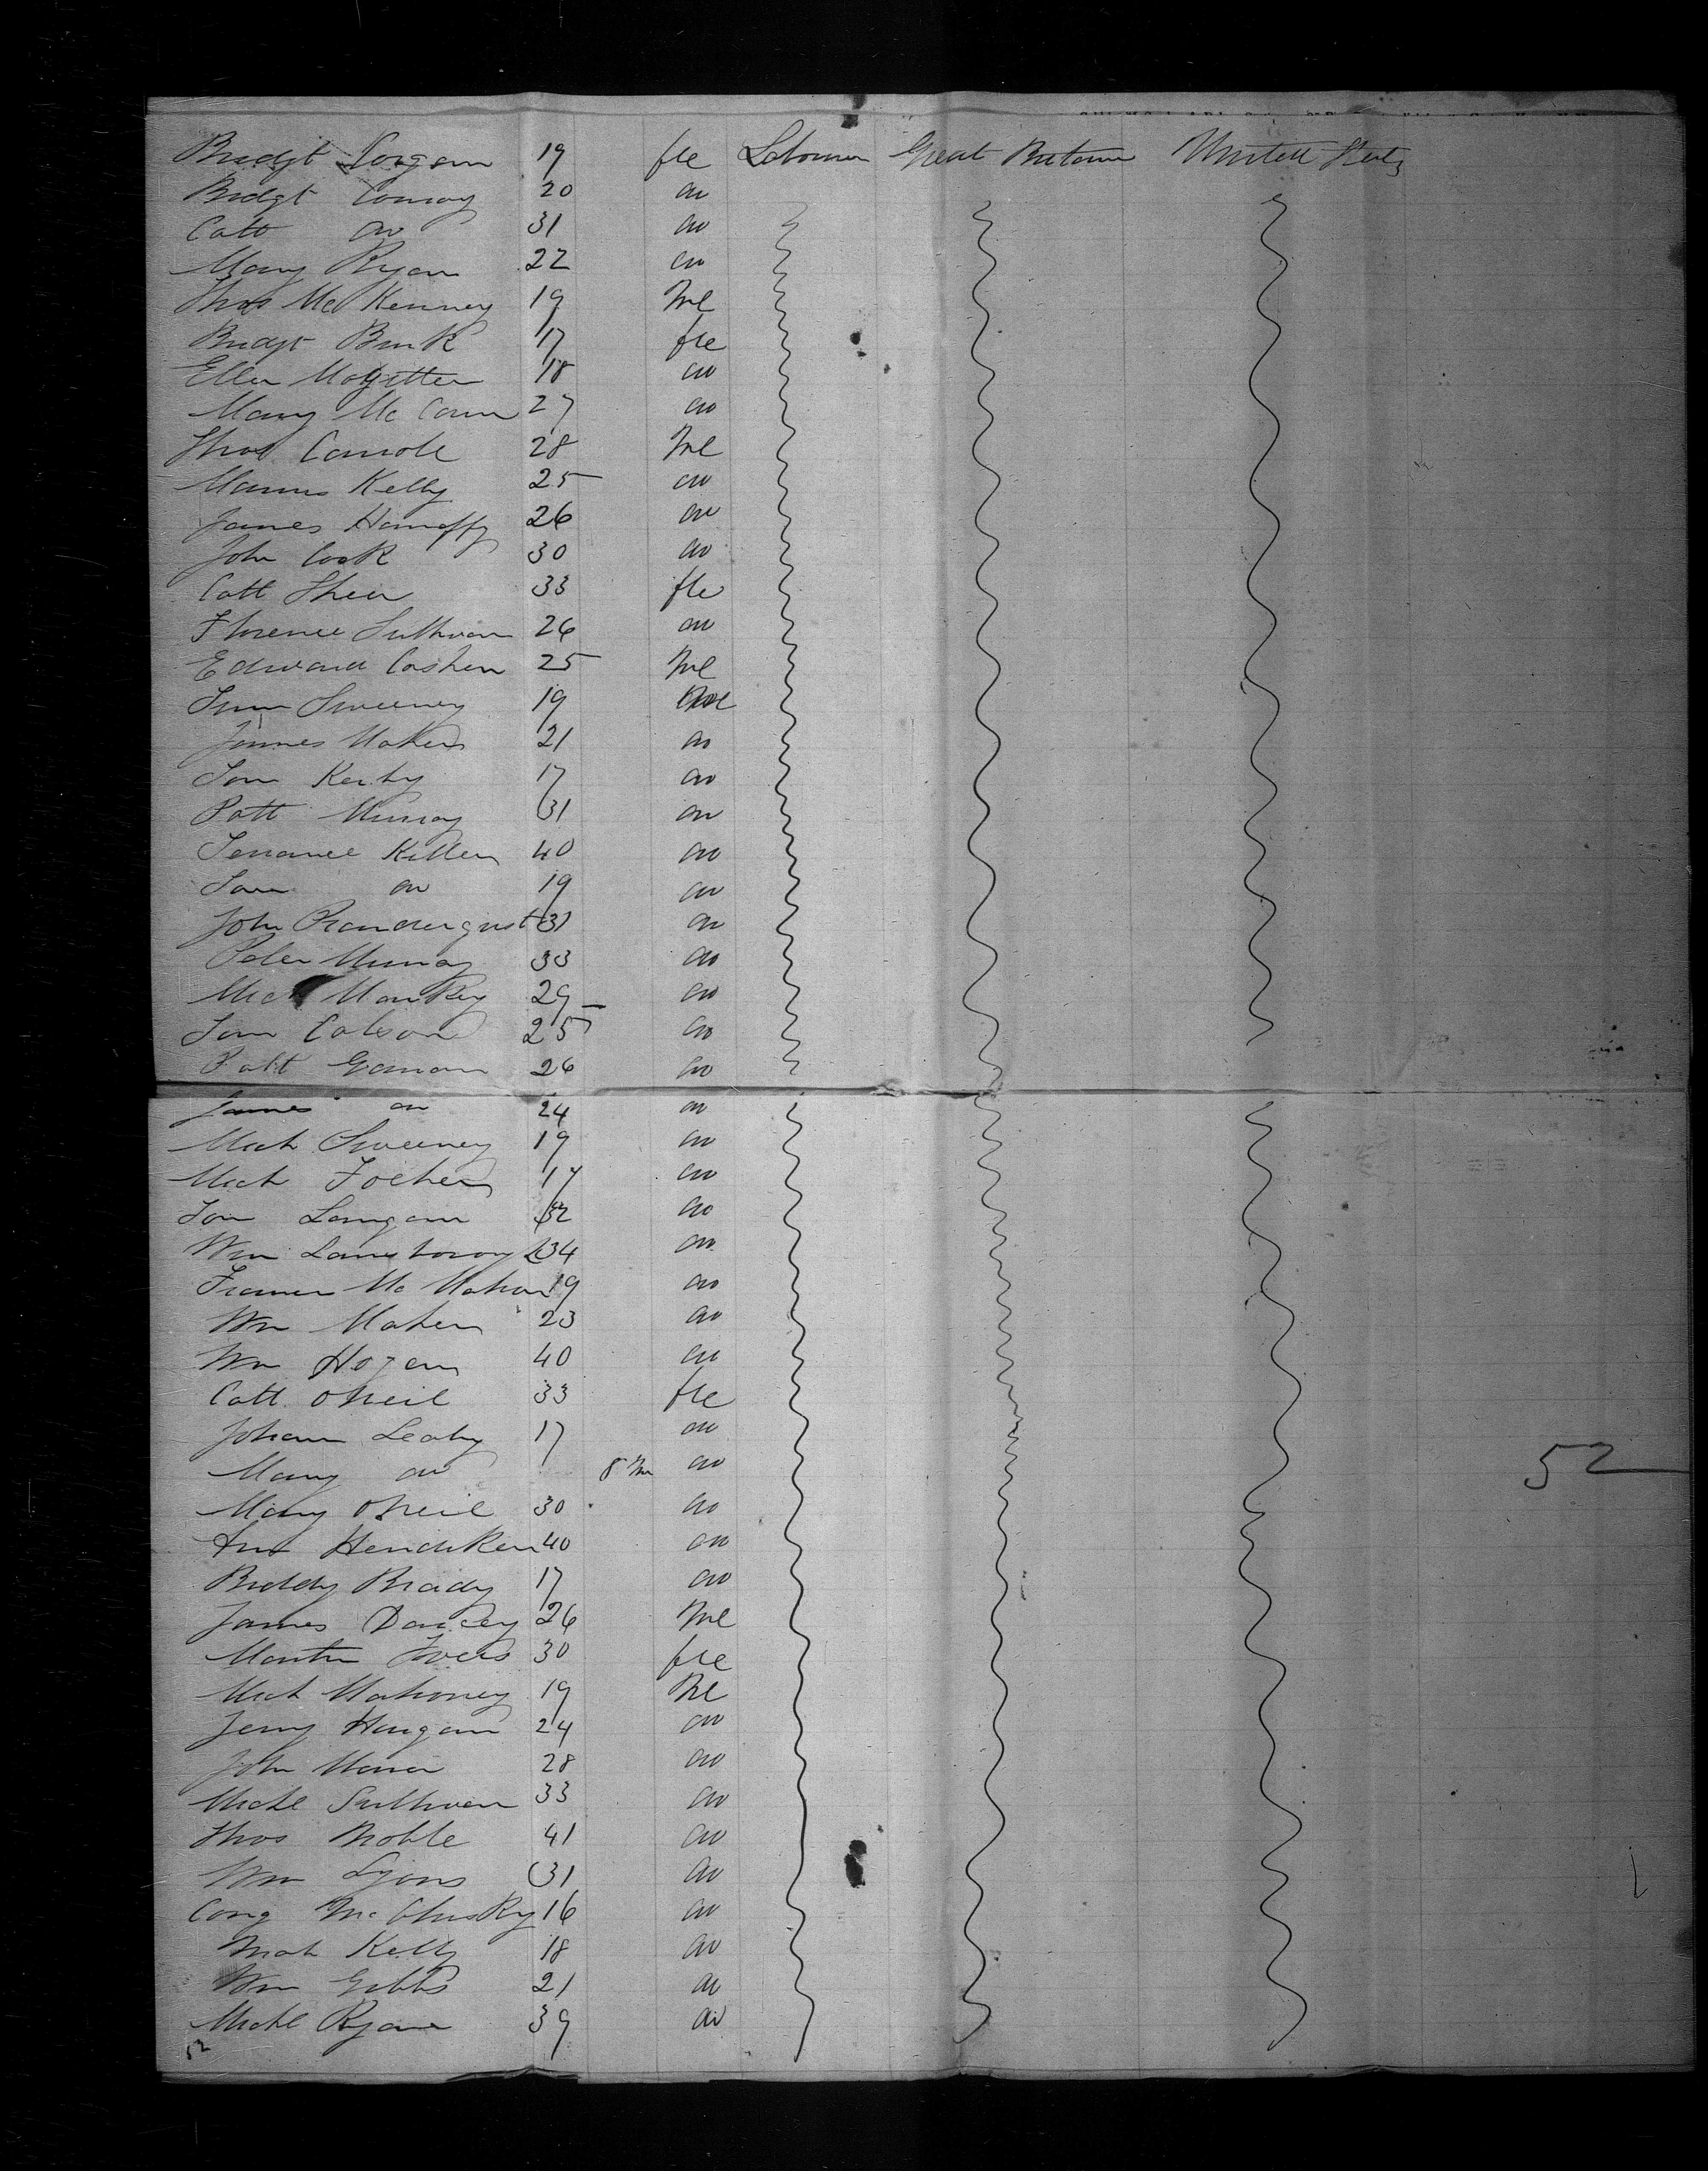 Bridgt Cogan 19 fle Labourer Great Britain United States
Bridgt Conroy 20 do
Cath do 31 do
Mary Ryan 22 do
Thos McKenney 19 Mle
Bridgt Burk 17 fle
Ellen 18 do
Mary McCann 27 do
Thos Carrole 28 Mle
Manus Kelly 25 do
James 26 do
John Cook 30 do
Catt Shea 33 fle
Florence Sullivan 26 do
Edward Cashen 25 Mle
Sweeney 19 Mle
James Maher 21 do
Tom Kerby 17 do
Patt Murray 31 do
Terrance Killen 40 do
Tom do 19 do
John Prandergust 31 do
Peter Murray 33 do
Mich 29 do
Tom 25 do
Patt 26 do
James do 24 do
Mich Sweeney 19 do
Mich 17 do
Tom Langan 32 do
Wm 34 do
Frances McMahon 19 do
Wm Maher 23 do
Wm Hogan 40 do
Catt ONeil 33 fle
Johan Leahy 17 do
Mary do 8 Mn do
Mary ONeil 30 do
Ann Hendiken 40 do
Biddy Brady 17 do
James 26 Mle
Martin 30 fle
Mich Mahoney 19 Mle
Jerry Haugan 24 do
John 28 do
Michl Sullivan 33 do
Thos Noble 41 do
Wm Lyons 31 do
McClusky 16 do
Mich Kelly 18 do
Wm Gibbs 21 do
Michl Ryan 39 do
52
52